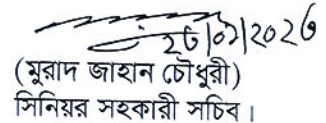 ২৬|০১|২০২৬
(মুরাদ জাহান চৌধুরী)
সিনিয়র সহকারী সচিব।